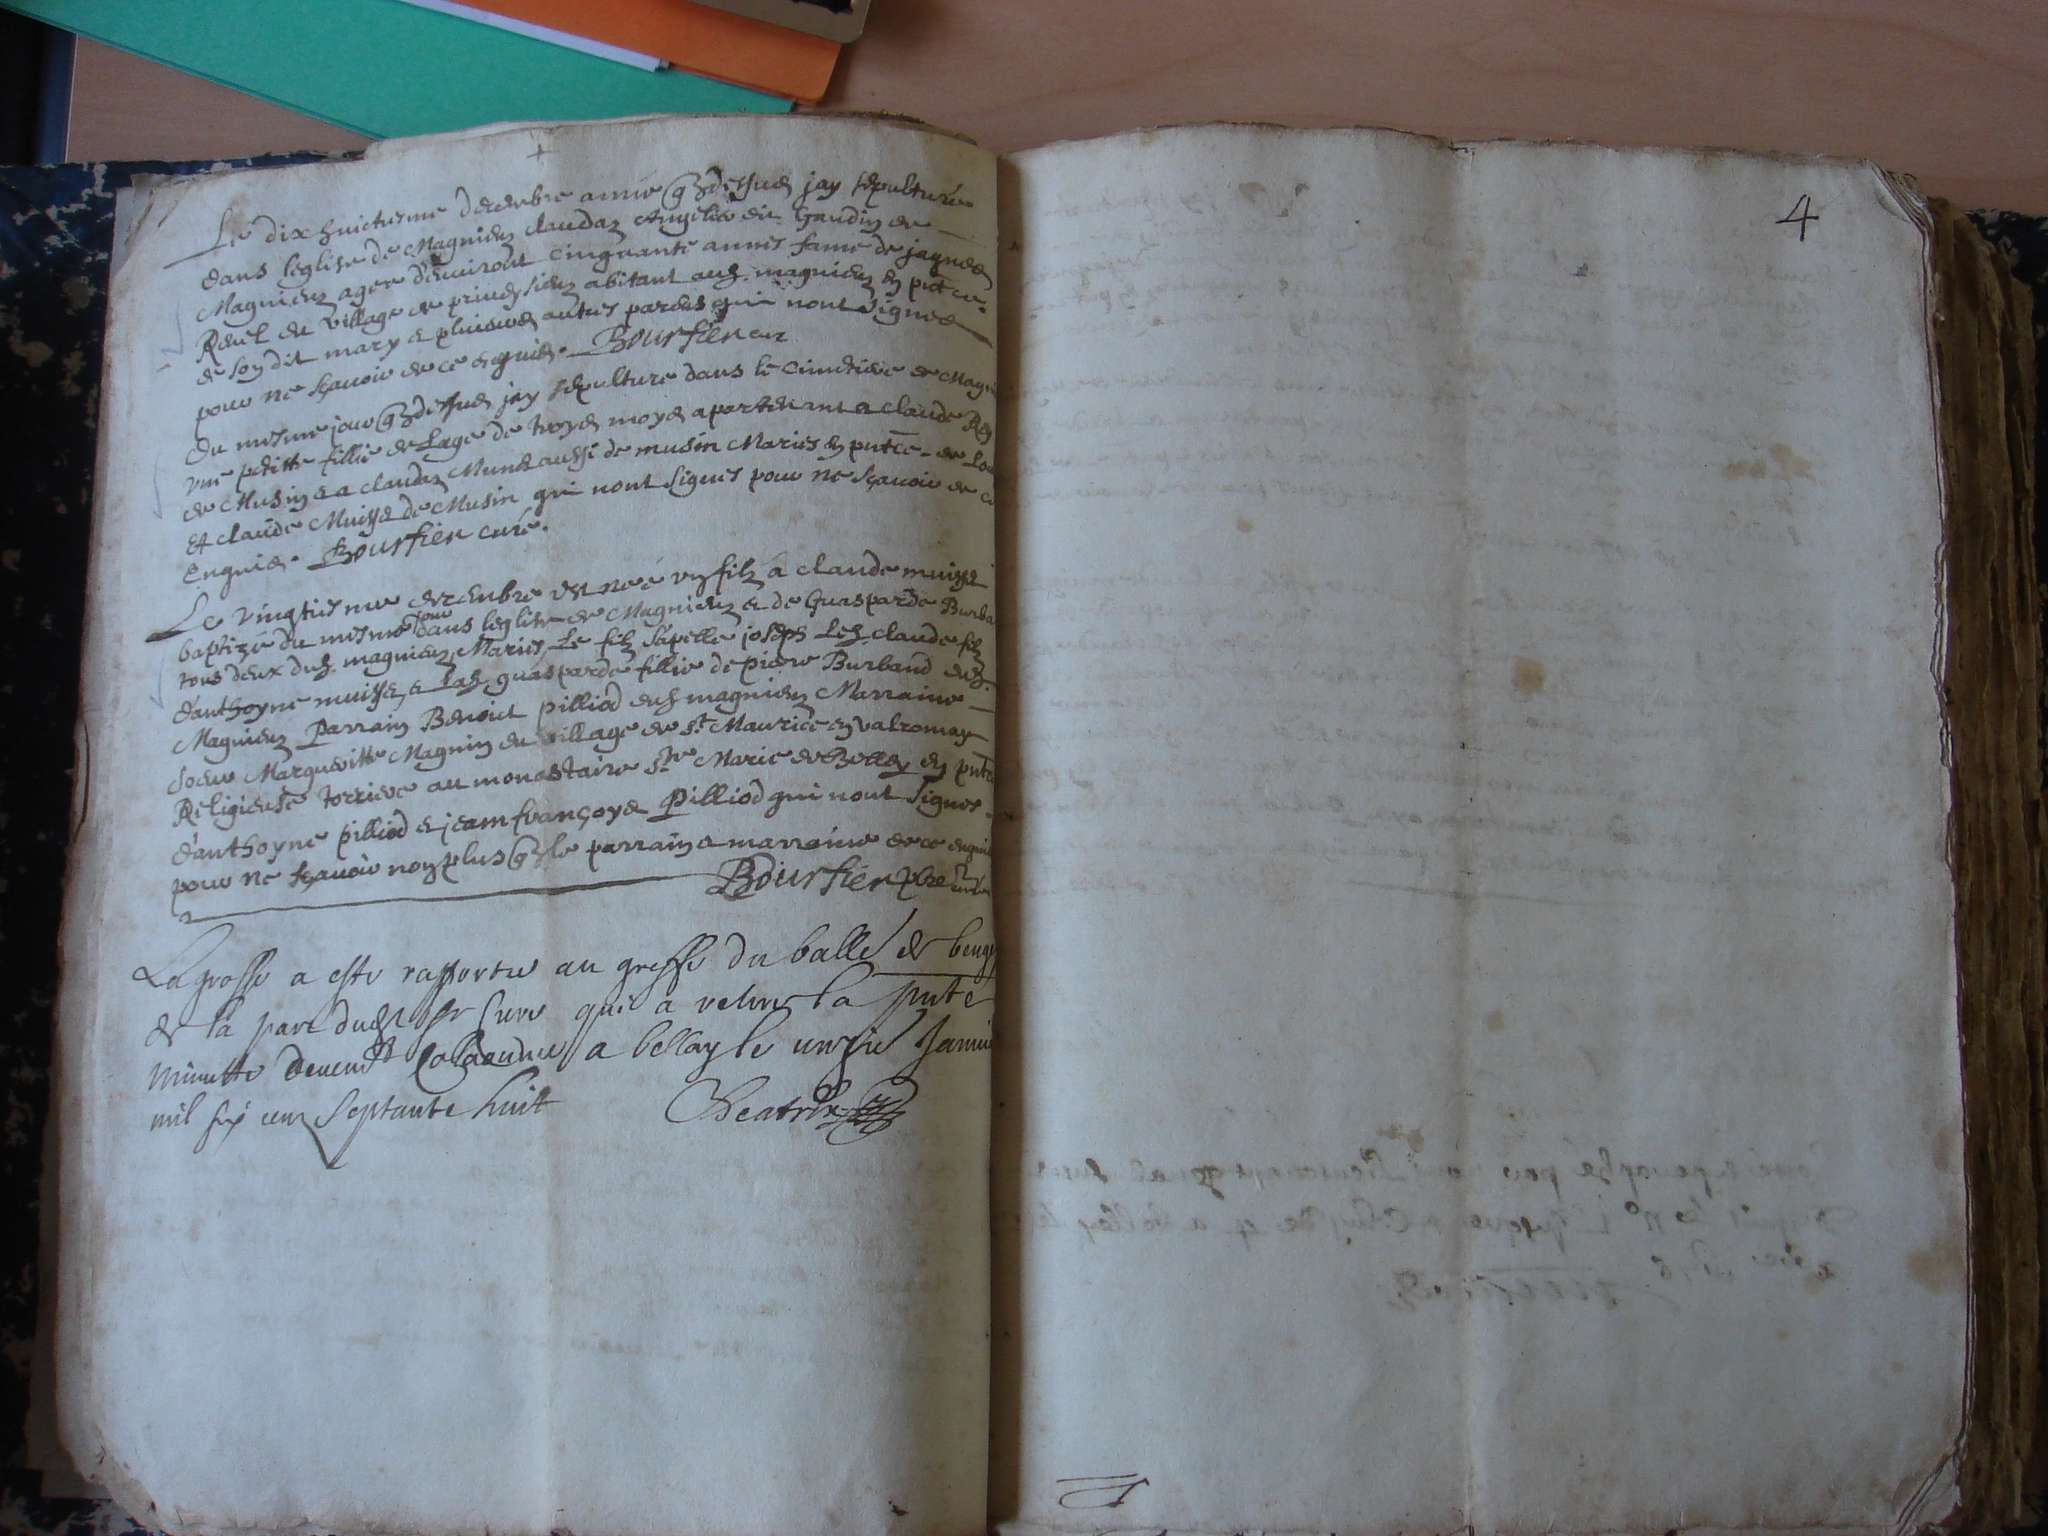 Le dix huictiesme decembre annee q3 dessus jay sepulture
dans leglise de Magnieu claudaz Angelin dit Gaudin de
Magnieu agee denviront cinquante annes fame de jaques
Reul du village de prines abitant aud. magnieu en pntce
de son dit mary & plusieurs autres parens qui nont signes
pour ne sçavoir de ce enquis. Boursier cur
du mesme jour q3 dessus jay sepulture dans le cimetiere de Magni
une petitte fillie de lage de troys moys apartenant a claude Rey
de Musin & a claudaz Munet aussi de musin Maries en pntce de
Et claude Muisse de Musin qui nont signes pour ne sçavoir de ce
Enquis. Boursier curé.
Le vingtiesme decembre est née un filz à claude muisse
baptizé du mesme jour dans leglise de Magnieu & de Guasparde Burba
tous deux dud. magnieu Maries, Le filz sapelle joseph Led. claude filz
danthoyne muisse & lad. guasparde fillie de piere Burband dud.
Magnieu Parrain Benoict pilliod dud. magnieu Marraine
soeur Margueritte Magnin du village de st. Maurice en valromay
Religieuse torriere au monastaire ste Marie de Belley en pntce
danthoyne pilliod & jeam françoys Pilliod qui nont signes
pour ne sçavoir non plus q3 le parrain & marraine de ce enquis
Boursier pbre curé
La grosse a este rapportee au greffe du balle de beugey
de la part dudt sr Cure qui a retire la pnte
minutte a bellay le unzie Janvie
mil six cent septante huit Cheatrix
4